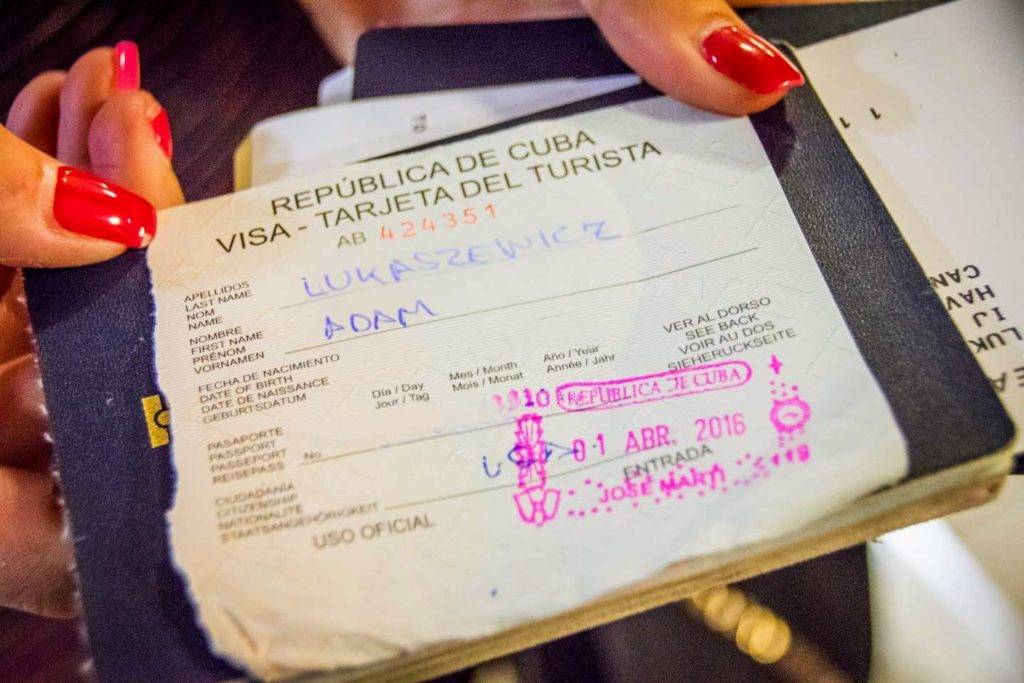 REPÚBLICA DE CUBA
VISA - TARJETA DEL TURISTA
AB 424351
APELLIDOS
LAST NAME
NOM
NAME
LUKASZEWICZ
NOMBRE
FIRST NAME
PRÉNOM
VORNAMEN
ADAM
FECHA DE NACIMIENTO
DATE OF BIRTH
DATE DE NAISSANCE
GEBURTSDATUM
Día / Day
Jour / Tag
Mes / Month
Mois / Monat
Año / Year
Année / Jahr
VER AL DORSO
SEE BACK
VOIR AU DOS
SIEHERUCKSEITE
PASAPORTE
PASSPORT
PASSEPORT
REISEPASS
No.
CIUDADANIA
CITIZENSHIP
NATIONALITÉ
STAATSANGEHÖRIGKEIT
USO OFICIAL
REPÚBLICA DE CUBA
01 ABR. 2016
ENTRADA
JOSE MARTI
119